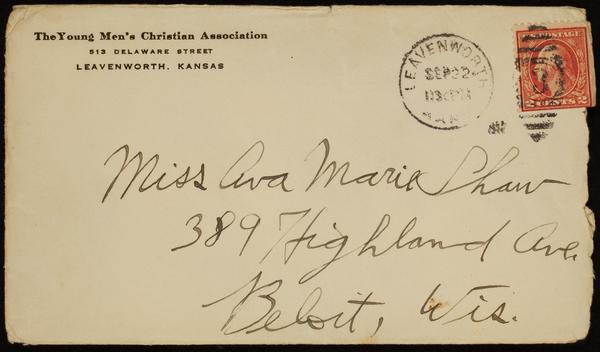 The Young Men's Christian Association
513 DELAWARE STREET
LEAVENWORTH, KANSAS
LEAVENWORTH
SEP 22
KAN
POSTAGE
CENTS 2
Miss Ava Marie Shaw
389 Highland Ave.
Beloit, Wis.